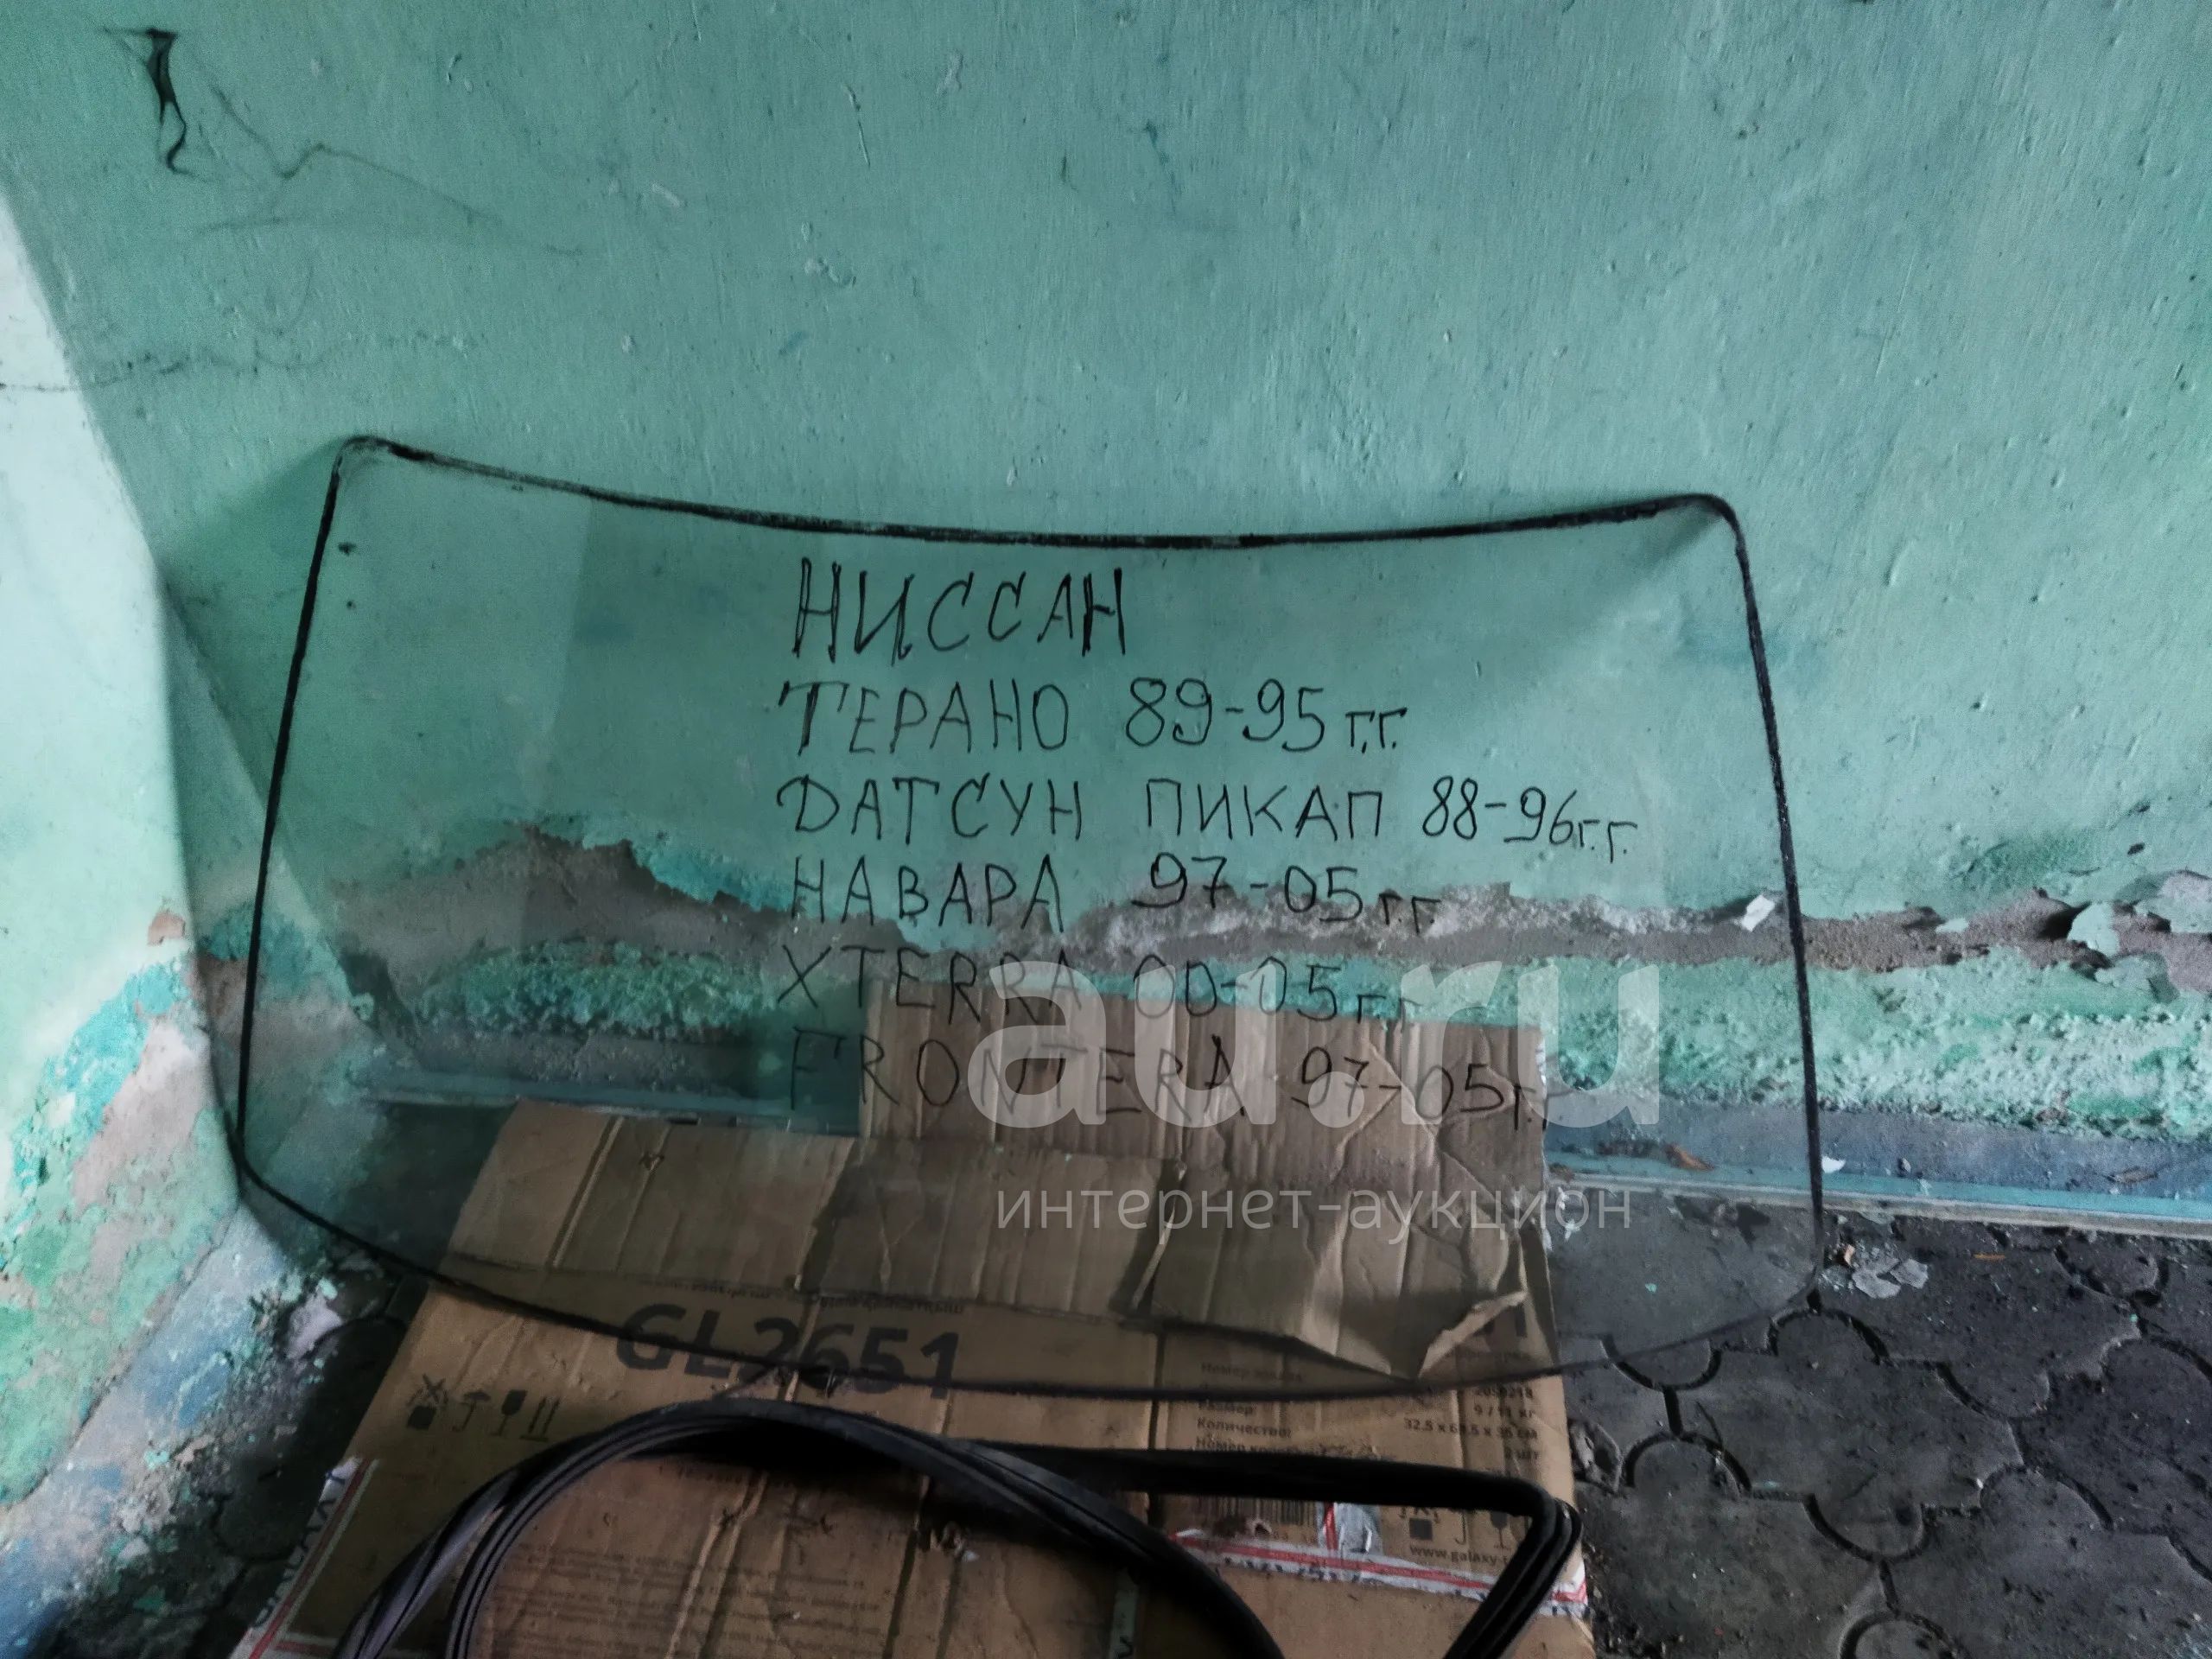 НИССАН
ТЕРАНО 89-95 г.г.
ДАТСУН ПИКАП 88-96 г.г.
НАВАРА 97-05 г.г
XTERRA 00-05 г.г
FRONTERA 97-05 г.
au.ru
интернет-аукцион
GL2651
Размер:
Количество: 32.5 x 63.5 x 36 см
Номер
www.galaxy-